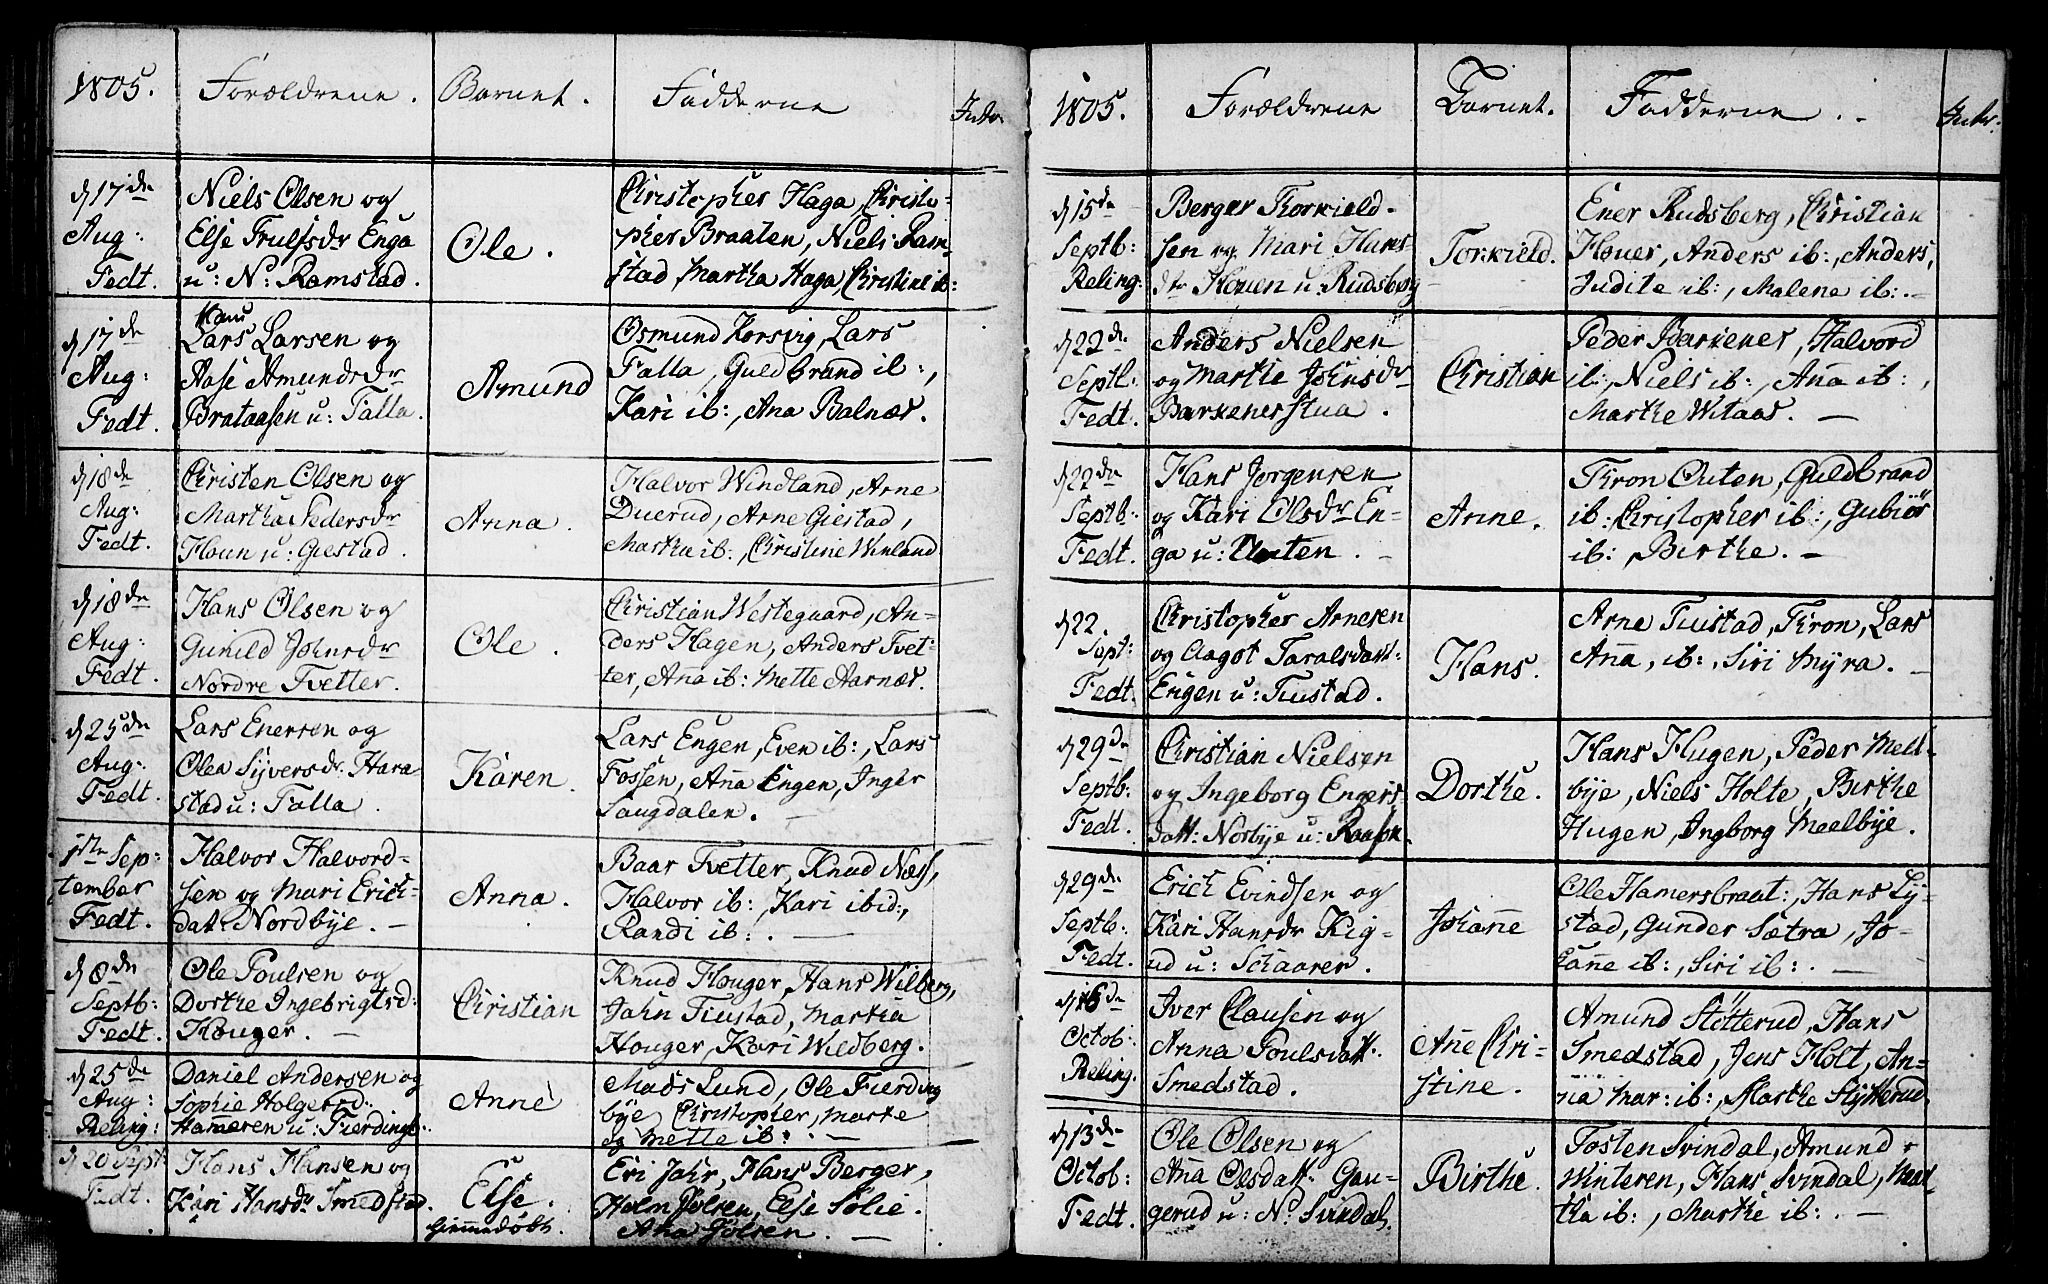 1805. Forældrene. Barnet. Fadderne Intr.
d 17de Aug: Fedt.
Niels Olsen og
Else Trulsdr Enga
u: N: Ramstad.
Ole.
Christopher Haga, Christo-
pher Braaten, Niels Ram-
stad, Martha Haga, Christine ib:
d 17de Aug: Fedt.
Hans
Lars Larsen og
Aase Amundsdr
Brataasen u: Falla.
Amund
Osmund Korsvig, Lars
Falla, Guldbrand ib:,
Kari ib:, Ana Balnær.
d 18de Aug: Fedt.
Christen Olsen og
Martha Pedersdr
Houn u: Giestad.
Anna.
Halvor Windland, Arne
Duerud, Arne Giestad,
Marthe ib:, Christine Winland
d 18de Aug: Fedt.
Hans Olsen og
Gunild Johnsdr
Nordre Tvetter.
Ole.
Christian Westegaard, An-
ders Hagen, Anders Tvet-
ter, Aña ib: Mette Aarnær.
d 25de Aug: Fedt.
Lars Enersen og
Olea Syversdr. Hara-
stad u: Falla.
Karen.
Lars Engen, Even ib:, Lars
Fossen, Aña Engen, Inger
Laugdalen. —
1ste Sep: tember Fedt.
Halvor Halvord-
sen og Mari Erich-
dat: Nordbye. —
Anna.
Baar Tvetter, Knud Næss,
Halvor ib:, Kari ibid:,
Randi ib:. —
d 8de Septb: Fedt.
Ole Poulsen og
Dorthe Ingebrigtsd:
Houger. —
Christian
Knud Houger, Hans Wilberg,
John Tiustad, Martha
Houger, Kari Wildberg.
d 25de Aug: Reling:
Daniel Andersen og
Sophie Holgersd:
Hameren u: Fierdingb:.
Anne
Mads Lund, Ole Fierding
bye Christopher, Marthe
og Mette ib:. —
d 20 Sept: Fedt.
Hans Hansen og
Kari Hansdr Smedstad.
Else.
Giemmedøbt.
Eri Jahr, Hans Berger,
Holm Jölsen, Else Solie.
Ana Jölsen. —
1805. Forældrene Barnet. Fadderne. - Intr.
d 15de Septb: Reling:
Berger Thorkield-
sen og Mari Hans-
dr Houen u: Rudsberg
Torkield.
Ener Rudsberg, Christian
Houer, Anders ib:, Anders,
Judite ib:, Malene ib:. -
d 22de Septb: Fedt.
Anders Nielsen
og Marthe Johnsdr
Barkenerstua.
Christian
Peder Barkener, Halvord
ib:, Niels ib:, Aña ib:,
Marthe Witaas. —
d 22de Septb: Fedt.
Hans Jørgensen
og Kari Olsdr En-
ga u: Outen. -
Anne.
Thron Outen, Guldbrand
ib: Christopher ib:, Gubiör
ib:, Birthe. —
d 22. Sept: Fedt.
Christopher Arnesen
og Aagot Taralsdatt:
Engen u: Tiustad.
Hans.
Arne Tiustad, Thron, Lars
Aña, ib:, Siri Myra. -
d 29de Septb: Fedt.
Christian Nielsen
og Ingeborg Eners-
datt: Norbye u:
Dorthe.
Hans Hugen, Peder Mell-
bye, Niels Holte, Birthe
Hugen, Ingborg Meelbye.
d 29de Septb: Fedt.
Erich Evindsen og
Kari Hansdr Rig-
ud u: Schaarer.
Johañe
Ole Hamersbraat:, Hans Ly-
stad, Gunder Sætra, Jo-
hañe ib:, Siri ib:. —
d 6de Octob: Reling.
Iver Clausen og
Anna Poulsdatt:
Smedstad.
Añe Chri-
stine.
Amund Støtterud, Hans
Smedstad, Jens Holt, An-
na Mar: ib:, Marthe Stytterud.
d 13de Octob: Fedt.
Ole Olsen og
Aña Olsdatt: Gau-
gerud u: N: Svindal.
Birthe.
Tosten Svindal, Amund
Winteren, Hans Svindal, Mar-
tha ib:, Marthe ib:. —